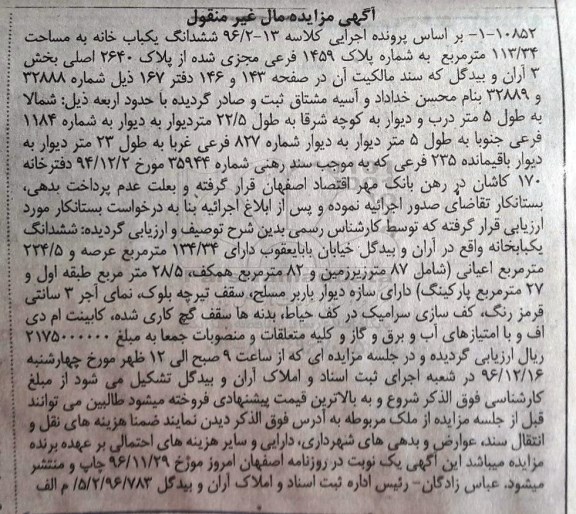 آگهی مزایده مال غیر منقول
۱-۱۰۸۵۲- بر اساس پرونده اجرایی کلاسه ۱۳-۹۶/۲ ششدانگ یکباب خانه به مساحت
۱۱۳/۳۴ مترمربع به شماره پلاک ۱۴۵۹ فرعی مجزی شده از پلاک ۲۶۴۰ اصلی بخش
۳ آران و بیدگل که سند مالکیت آن در صفحه ۱۴۳ و ۱۴۶ دفتر ۱۶۷ ذیل شماره ۳۲۸۸۸
و ۳۲۸۸۹ بنام محسن خداداد و آسیه مشتاق ثبت و صادر گردیده با حدود اربعه ذیل: شمالا
به طول ۵ متر درب و دیوار به کوچه شرقا به طول ۲۲/۵ متردیوار به دیوار به شماره ۱۱۸۴
فرعی جنوبا به طول ۵ متر دیوار به دیوار شماره ۸۲۷ فرعی غربا به طول ۲۳ متر دیوار به
دیوار باقیمانده ۲۳۵ فرعی که به موجب سند رهنی شماره ۳۵۹۴۴ مورخ ۹۴/۱۲/۲ دفترخانه
۱۷۰ کاشان در رهن بانک مهر اقتصاد اصفهان قرار گرفته و بعلت عدم پرداخت بدهی،
بستانکار تقاضای صدور اجرائیه نموده و پس از ابلاغ اجرائیه بنا به درخواست بستانکار مورد
ارزیابی قرار گرفته که توسط کارشناس رسمی بدین شرح توصیف و ارزیابی گردیده: ششدانگ
یکبابخانه واقع در آران و بیدگل خیابان بابایعقوب دارای ۱۳۴/۳۴ مترمربع عرصه و ۲۲۴/۵
مترمربع اعیانی (شامل ۸۷ مترزیرزمین و ۸۲ مترمربع همکف، ۲۸/۵ متر مربع طبقه اول و
۲۷ مترمربع پارکینگ) دارای سازه دیوار باربر مسلح، سقف تیرچه بلوک، نمای آجر ۳ سانتی
قرمز رنگ، کف سازی سرامیک در کف حیاط، بدنه ها سقف گچ کاری شده، کابینت ام دی
اف و با امتیازهای آب و برق و گاز و کلیه متعلقات و منصوبات جمعا به مبلغ ۲۱۷۵۰۰۰۰۰۰
ریال ارزیابی گردیده و در جلسه مزایده ای که از ساعت ۹ صبح الی ۱۲ ظهر مورخ چهارشنبه
۹۶/۱۲/۱۶ در شعبه اجرای ثبت اسناد و املاک آران و بیدگل تشکیل می شود از مبلغ
کارشناسی فوق الذکر شروع و به بالاترین قیمت پیشنهادی فروخته میشود طالبین می توانند
قبل از جلسه مزایده از ملک مربوطه به آدرس فوق الذکر دیدن نمایند ضمنا هزینه های نقل و
انتقال سند، عوارض و بدهی های شهرداری، دارایی و سایر هزینه های احتمالی بر عهده برنده
مزایده میباشد این آگهی یک نوبت در روزنامه اصفهان امروز موژخ ۹۶/۱۱/۲۹ چاپ و منتشر
میشود. عباس زادگان- رئیس اداره ثبت اسناد و املاک اران و بیدگل ۵/۲/۹۶/۷۸۳/ م الف